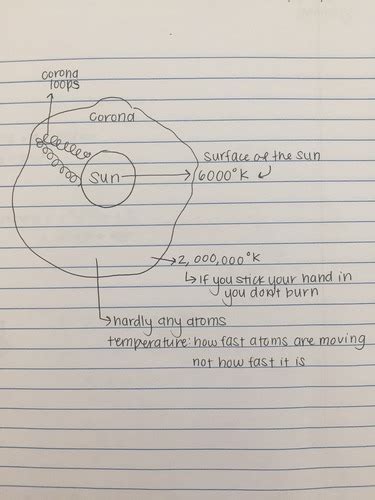 corona
loops
corona
surface of the sun
sun
6000°K
2,000,000°K
If you stick your hand in
you don't burn
hardly any atoms
temperature: how fast atoms are moving
not how fast it is